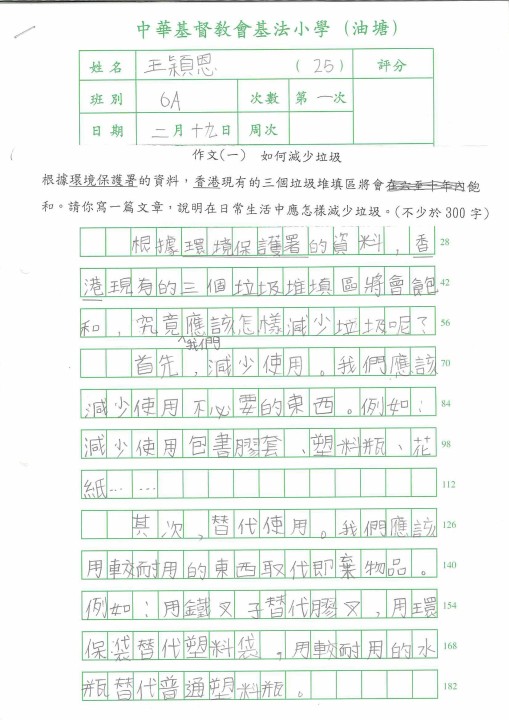 中華基督教會基法小學（油塘）
姓名 王穎恩 (25) 評分
班別 6A 次數 第一次
日期 二月十九日 周次
作文(一) 如何減少垃圾
根據環境保護署的資料，香港現有的三個垃圾堆填區將會在六至十年內飽
和。請你寫一篇文章，說明在日常生活中應怎樣減少垃圾。(不少於300字)
根據環境保護署的資料，香 28
港現有的三個垃圾堆填區將會飽 42
和，究竟應該怎樣減少垃圾呢？ 56
我們
首先，減少使用。我們應該 70
減少使用不必要的東西。例如： 84
減少使用包書膠套、塑料瓶、花 98
紙…… 112
其次，替代使用。我們應該 126
用較耐用的東西取代即棄物品。 140
例如：用鐵叉子替代膠叉，用環 154
保袋替代塑料袋，用較耐用的水 168
瓶替代普通塑料瓶。 182